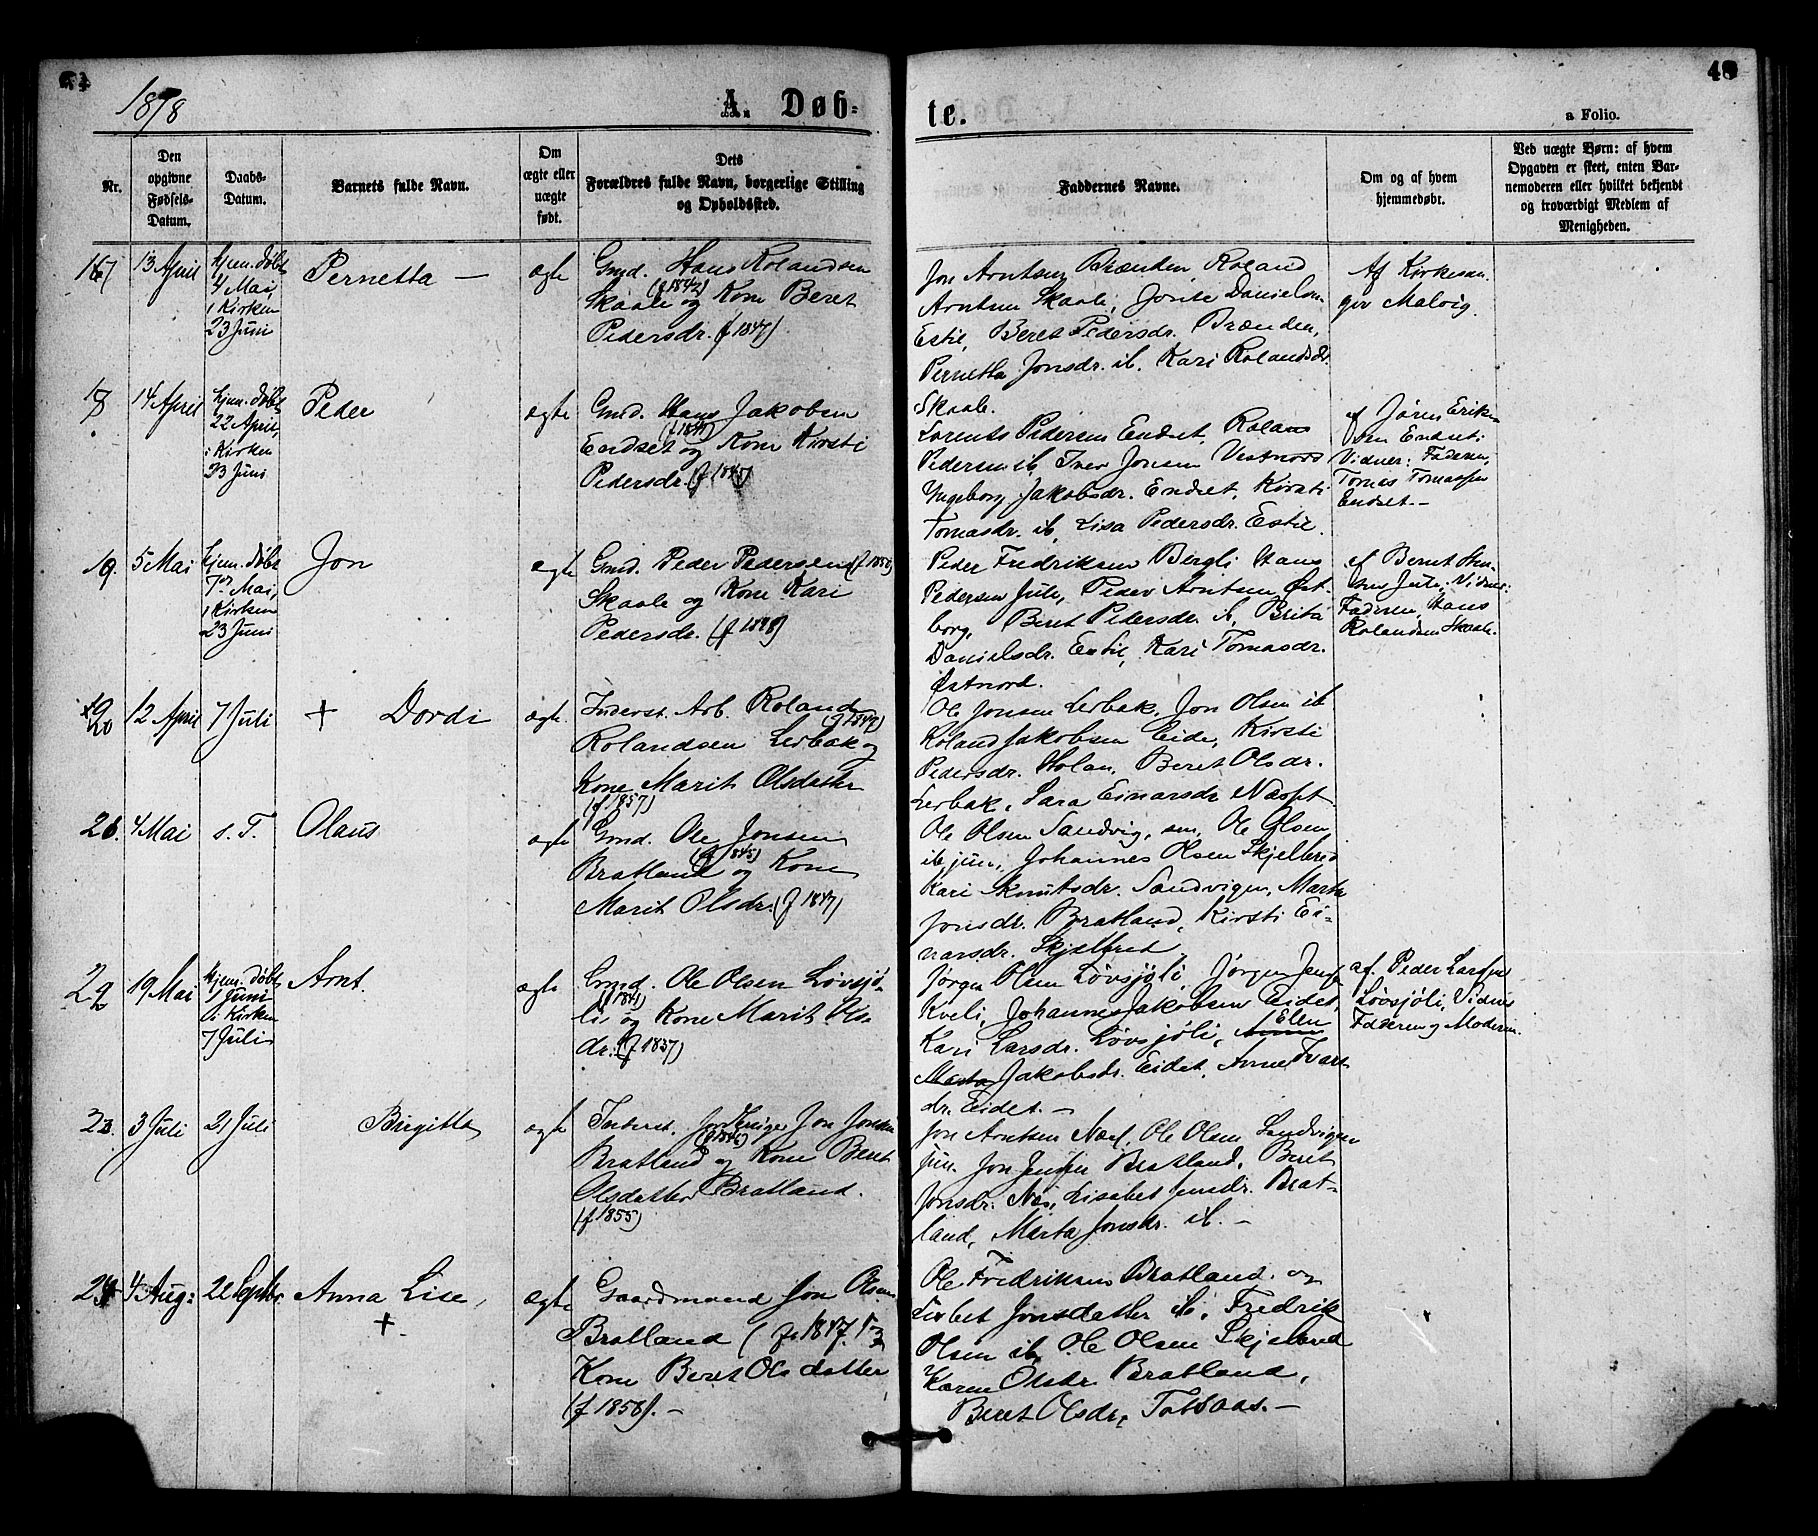 1878
A. Døb-
te.
a Folio.
48
Nr.
Den
opgivne
Fødsels-
Datum.
Daabs-
Datum.
Barnets fulde Navn.
Om
ægte eller
uægte
født.
Dets
Forældres fulde Navn, borgerlige Stilling
og Opholdssted.
Faddernes Navne.
Om og af hvem
hjemmedøbt.
Ved uægte Børn: af hvem
Opgaven er skeet, enten Bar-
nemoderen eller hvilket bekjendt
og troværdigt Medlem af
Menigheden.
13 April
hjem. døbt
4 Mai,
i Kirken
23 Juni
Pernetta —
ægte
Gmd. Hans Rolandsen
(f 1842)
Skaale og Kone Beret
Pedersdr. (f 1847)
Jon Arntsen Brænden, Roland
Arntsen Skaale, Danielsen
Estil, Beret Pedersdr. Brænden,
Pernetta Jonsdr. ib. Kari Rolandsdr.
Skaale.
Af Kirkesan-
ger Malvig.
18
14 April
hjem. døbt
22 April,
i Kirken
23 Juni
Peder
ægte
Gmd. Hans Jakobsen
Endset og Kone Kirsti
Pedersdr.
Lorents Pedersen Endset, Rolans
Pedersen ib, Iver Jonsen Vestnord
Ingeborg Jakobsdr. Endset, Kirsti
Tomasdr. ib, Lisa Pedersdr. Estil.
af Jøren Erik-
sen Endset;
Vidner: Faderen,
Tomas Tomassen
Endset. —
19.
5 Mai
hjem. døbt
7de Mai,
i Kirken
23 Juni
Jon
ægte
Gmd. Peder Pedersen (f 1850)
Skaale og Kone Kari
Pedersdr. (f 1848)
Peder Fredriksen Bergli, Hans
Pedersen Jule, Peder Arntsen Øst-
borg, Beret Pedersdr. ib, Brita
Danielsdr. Estil, Kari Tomasdr.
Østnord.
af Beret
Vidner:
Faderen, Hans
Rolandsen Skaale.
20
12 April
7 Juli
+ Dordi
ægte.
Inderst. Arb. Roland
Rolandsen Lerbak og
Kone Marit Olsdatter
(f 1857)
Ole Jonsen Lerbak, Jon Olsen ib
Roland Jakobsen Eide, Kirsti
Pedersdr. Holan, Beret Olsdr.
Lerbak, Sara Einarsdr
21.
4 Mai
s. T.
Olaus
ægte
Gmd. Ole Jonsen
(f 1845)
Bratland og Kone
Marit Olsdr. (f 1847)
Ole Olsen Sandvig, sen, Ole Olsen
ib jun, Johannes Olsen Skjelbred
Kari Knutsdr. Sandvigen, Marta
Jonsdr. Bratland, Kirsti Ei-
narsdr. Skjelbret
22
19 Mai
hjem. døbt
1 Juni
i Kirken
7 Juli
Arnt.
ægte
Gmd. Ole Olsen Løvsjø-
(f 1841)
li og Kone Marit Ols-
dr. (f 1837)
Jørgen Olsen Løvsjøli, Jørgen
Kveli, Johannes Jakobsen Eidet,
Elen
Kari Larsdr. Løvsjøli,
Marta Jakobsdr. Eidet, Anne Ivars
dr. Eidet. —
af. Peder Larsen
Løvsjøli, Vidner
Faderen og Moderen.
23.
3 Juli
21 Juli
Birgitta
ægte
Inderst. Jon Jonsen
(f 1846)
Bratland og Kone Beret
Olsdatter Bratland.
(f 1855)
Jon Arntsen Næs, Ole Olsen Sandvigen
jun. Jon Bratland, Beret
Jonsdr. Næs, Lisabet Jonsdr. Brat-
land, Marta Jonsdr. ib. —
24
4 Aug:
Septbr
Anna Lise,
+.
ægte
Gaardmand Jon Olsen
Bratland
Kone Beret Olsdatter
(f 1858). —
Ole Fredriksen Bratland. og
Lisbet Jonsdatter ib. Fredrik
Olsen ib, Ole Olsen Skjelbred
Karen Olsdr Bratland,
Beret Olsdr, Totsaas. —